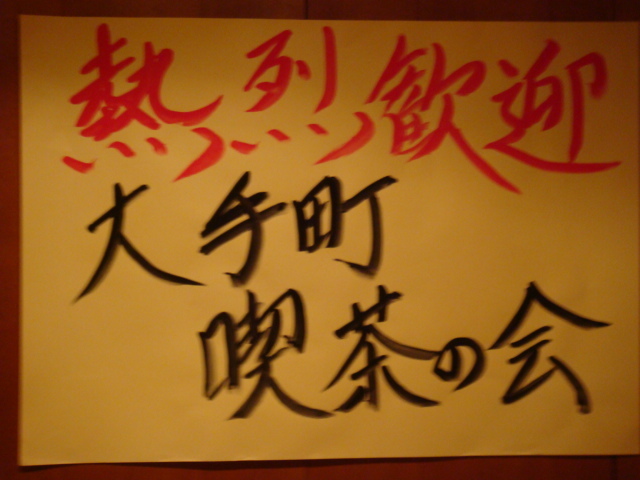 熱烈歓迎
大手町
喫茶の会